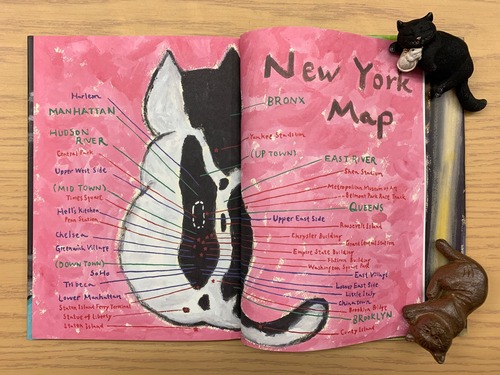 New York
Map
Harlem
MANHATTAN
HUDSON
RIVER
Central Park
Upper West Side
(MID TOWN)
Times Square
Hell's Kitchen
Penn Station
Chelsea
Greenwich Village
(DOWN TOWN)
SoHo
Tribeca
Lower Manhattan
Staten Island Ferry Terminal
Statue of Liberty
Staten Island
BRONX
Yankee Stadium
(UP TOWN)
EAST RIVER
Shea Stadium
Metropolitan Museum of Art
Belmont Park Race Track
QUEENS
Roosevelt Island
Upper East Side
Chrysler Building
Grand Central Station
Empire State Building
Flatiron Building
Washington Square Park
East Village
Lower East Side
Little Italy
Chinatown
Brooklyn Bridge
BROOKLYN
Coney Island